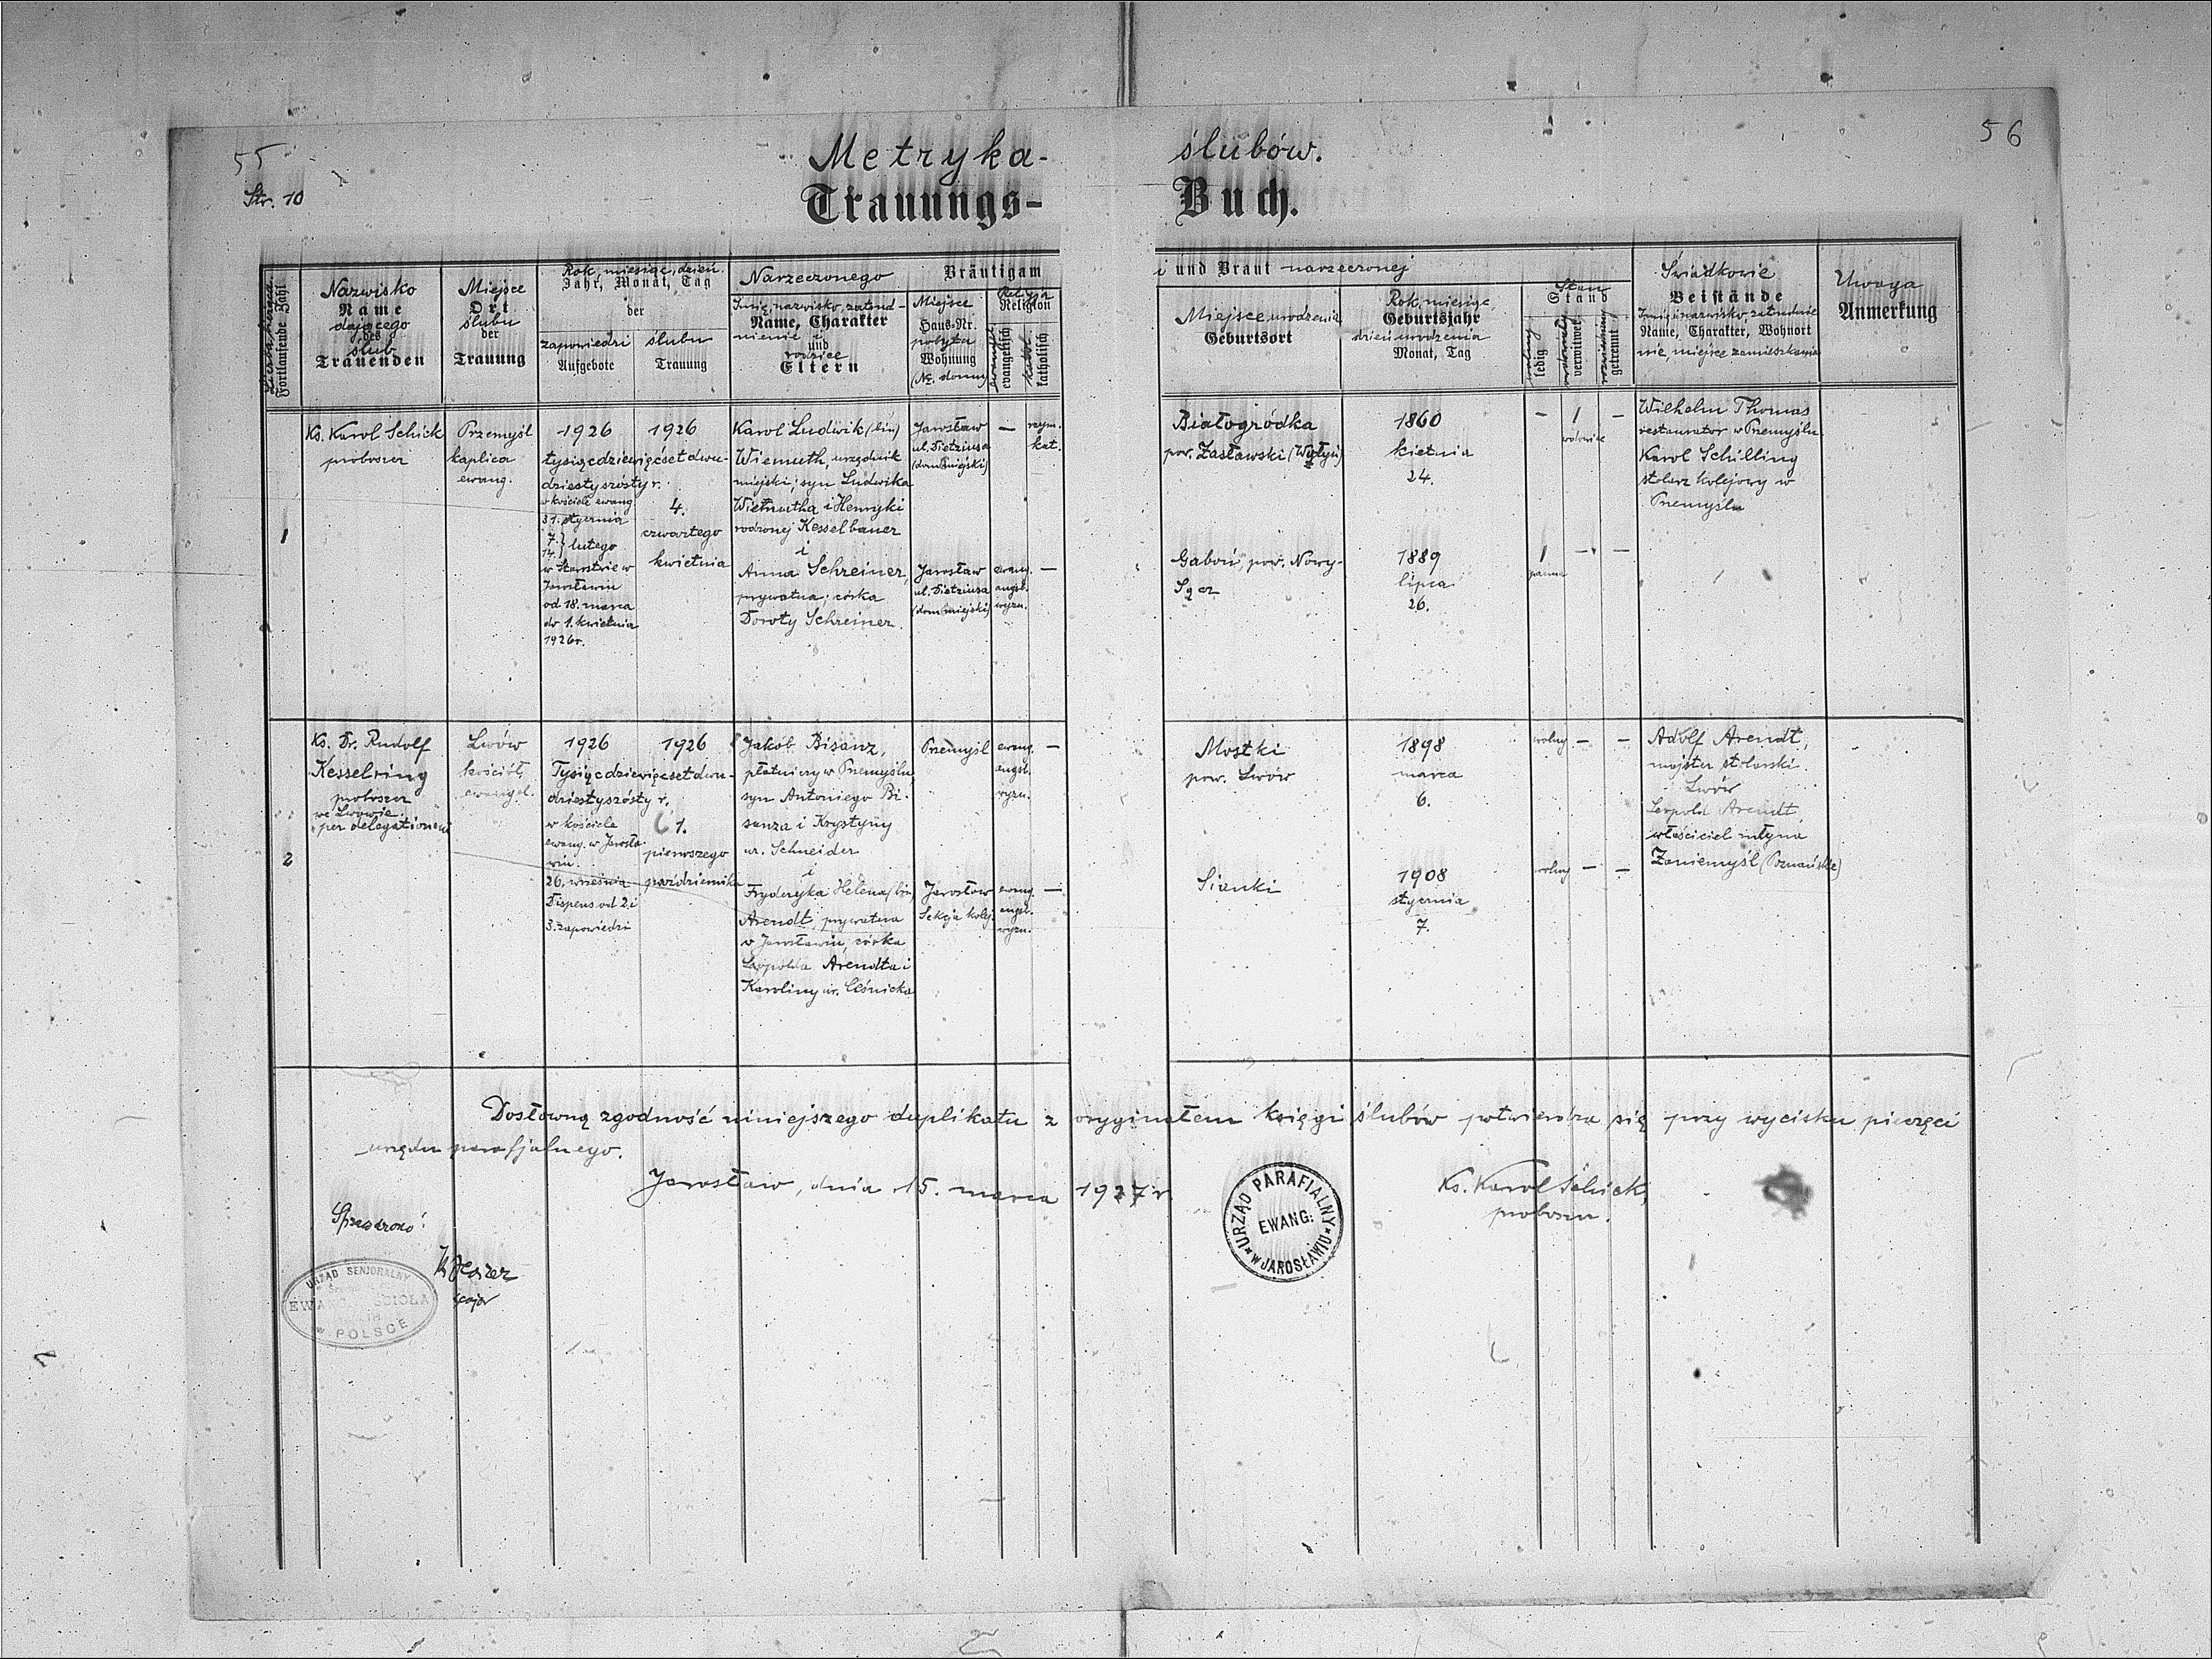 55
56
Str. 10
Metryka- ślubów.
Trauungs- Buch.
Fortlaufende Zahl
Nazwisko
Name
dającego
des
ślub
Trauenden
Miejsce
Ort
ślubu
der
Trauung
Rok, miesiąc, dzień
Jahr, Monat, Tag
der
zapowiedzi
Aufgebote
ślubu
Trauung
Narzeczonego
Bräutigam
i und Braut narzeczonej
Imię, nazwisko, zatrud-
Name, Charakter
nienie i
und
rodzice
Eltern
Miejsce
Haus-Nr.
pobytu
Wohnung
(Nr. domu)
Religja
Religion
evangelisch
katholisch
Miejsce urodzenia
Geburtsort
Rok, miesiąc
Geburtsjahr
dzień urodzenia
Monat, Tag
Stan
Stand
wolny
ledig
verwitwet
getrennt
Świadkowie
Beistände
Imię i nazwisko, zatrudnie
Name, Charakter, Wohnort
nie, miejsce zamieszkania
Uwaga
Anmerkung
1
Ks. Karol Schick
proboszcz
Przemyśl
kaplica
ewang.
1926
1926
tysiącdziewięćset dwu-
dziestyszósty r.
w kościele ewang
31. stycznia
7.
14. } lutego
w Starostwie w
Jarosławiu
od 18. marca
do 1. kwietnia
1926 r.
4.
czwartego
kwietnia
Karol Ludwik (bin)
Wiemuth, urzędnik
miejski, syn Ludwika
Wiemutha i Henryki
rodzonej Kesselbauer
i
Anna Schreiner,
prywatna; córka
Doroty Schreiner.
Jarosław
ul. Dietziusa
(dom miejski)
—
rzym.
kat.
Jarosław
ul. Dietziusa
(dom miejski)
ewang.
augsb.
wyzn.
—
Białogródka
pow. Zasławski (Wołyń)
1860
kwietnia
24.
— 1 —
wdowiec
Wilhelm Thomas
restaurator w Przemyślu.
Karol Schilling
stolarz kolejowy w
Przemyślu
Gaboń, pow. Nowy-
Sącz
1889
lipca
26.
1 — —
panna
2
Ks. Dr. Rudolf
Kesselring
proboszcz
we Lwowie.
per delegationem
Lwów
kościół
ewangel.
1926
1926
Tysiącdziewięćset dwu-
dziestyszósty r.
w kościele
ewang. w Jarosła-
wiu.
26. września
Dispens od 2 i
3. zapowiedzi
1.
pierwszego
października
Jakób Bisanz,
płatniczy w Przemyślu,
syn Antoniego Bi-
sanza i Krystyny
ur. Schneider
i
Fryderyka Helena (bin)
Arendt, prywatna
w Jarosławiu, córka
Leopolda Arendta i
Karoliny ur. Leśnicka
Przemyśl
ewang.
augsb.
wyzn.
—
Jarosław
Sekcja kolej.
ewang.
augsb.
wyzn.
—
Mostki
pow. Lwów
1898
marca
6.
wolny — —
Adolf Arendt,
majster stolarski
Lwów
Leopold Arendt,
właściciel młyna
Zaniemyśl (Poznańskie)
Sianki
1908
stycznia
7.
wolny — —
Dosłowną zgodność niniejszego duplikatu z oryginałem księgi ślubów potwierdza się przy wycisku pieczęci
urzędu parafjalnego.
Jarosław, dnia 15. marca 1927 r.
Ks. Karol Schick,
proboszcz.
URZĄD PARAFIALNY
EWANG:
W JAROSŁAWIU
Sprawdzono:
URZĄD SENJORALNY
EWANG. KOŚCIOŁA
W POLSCE